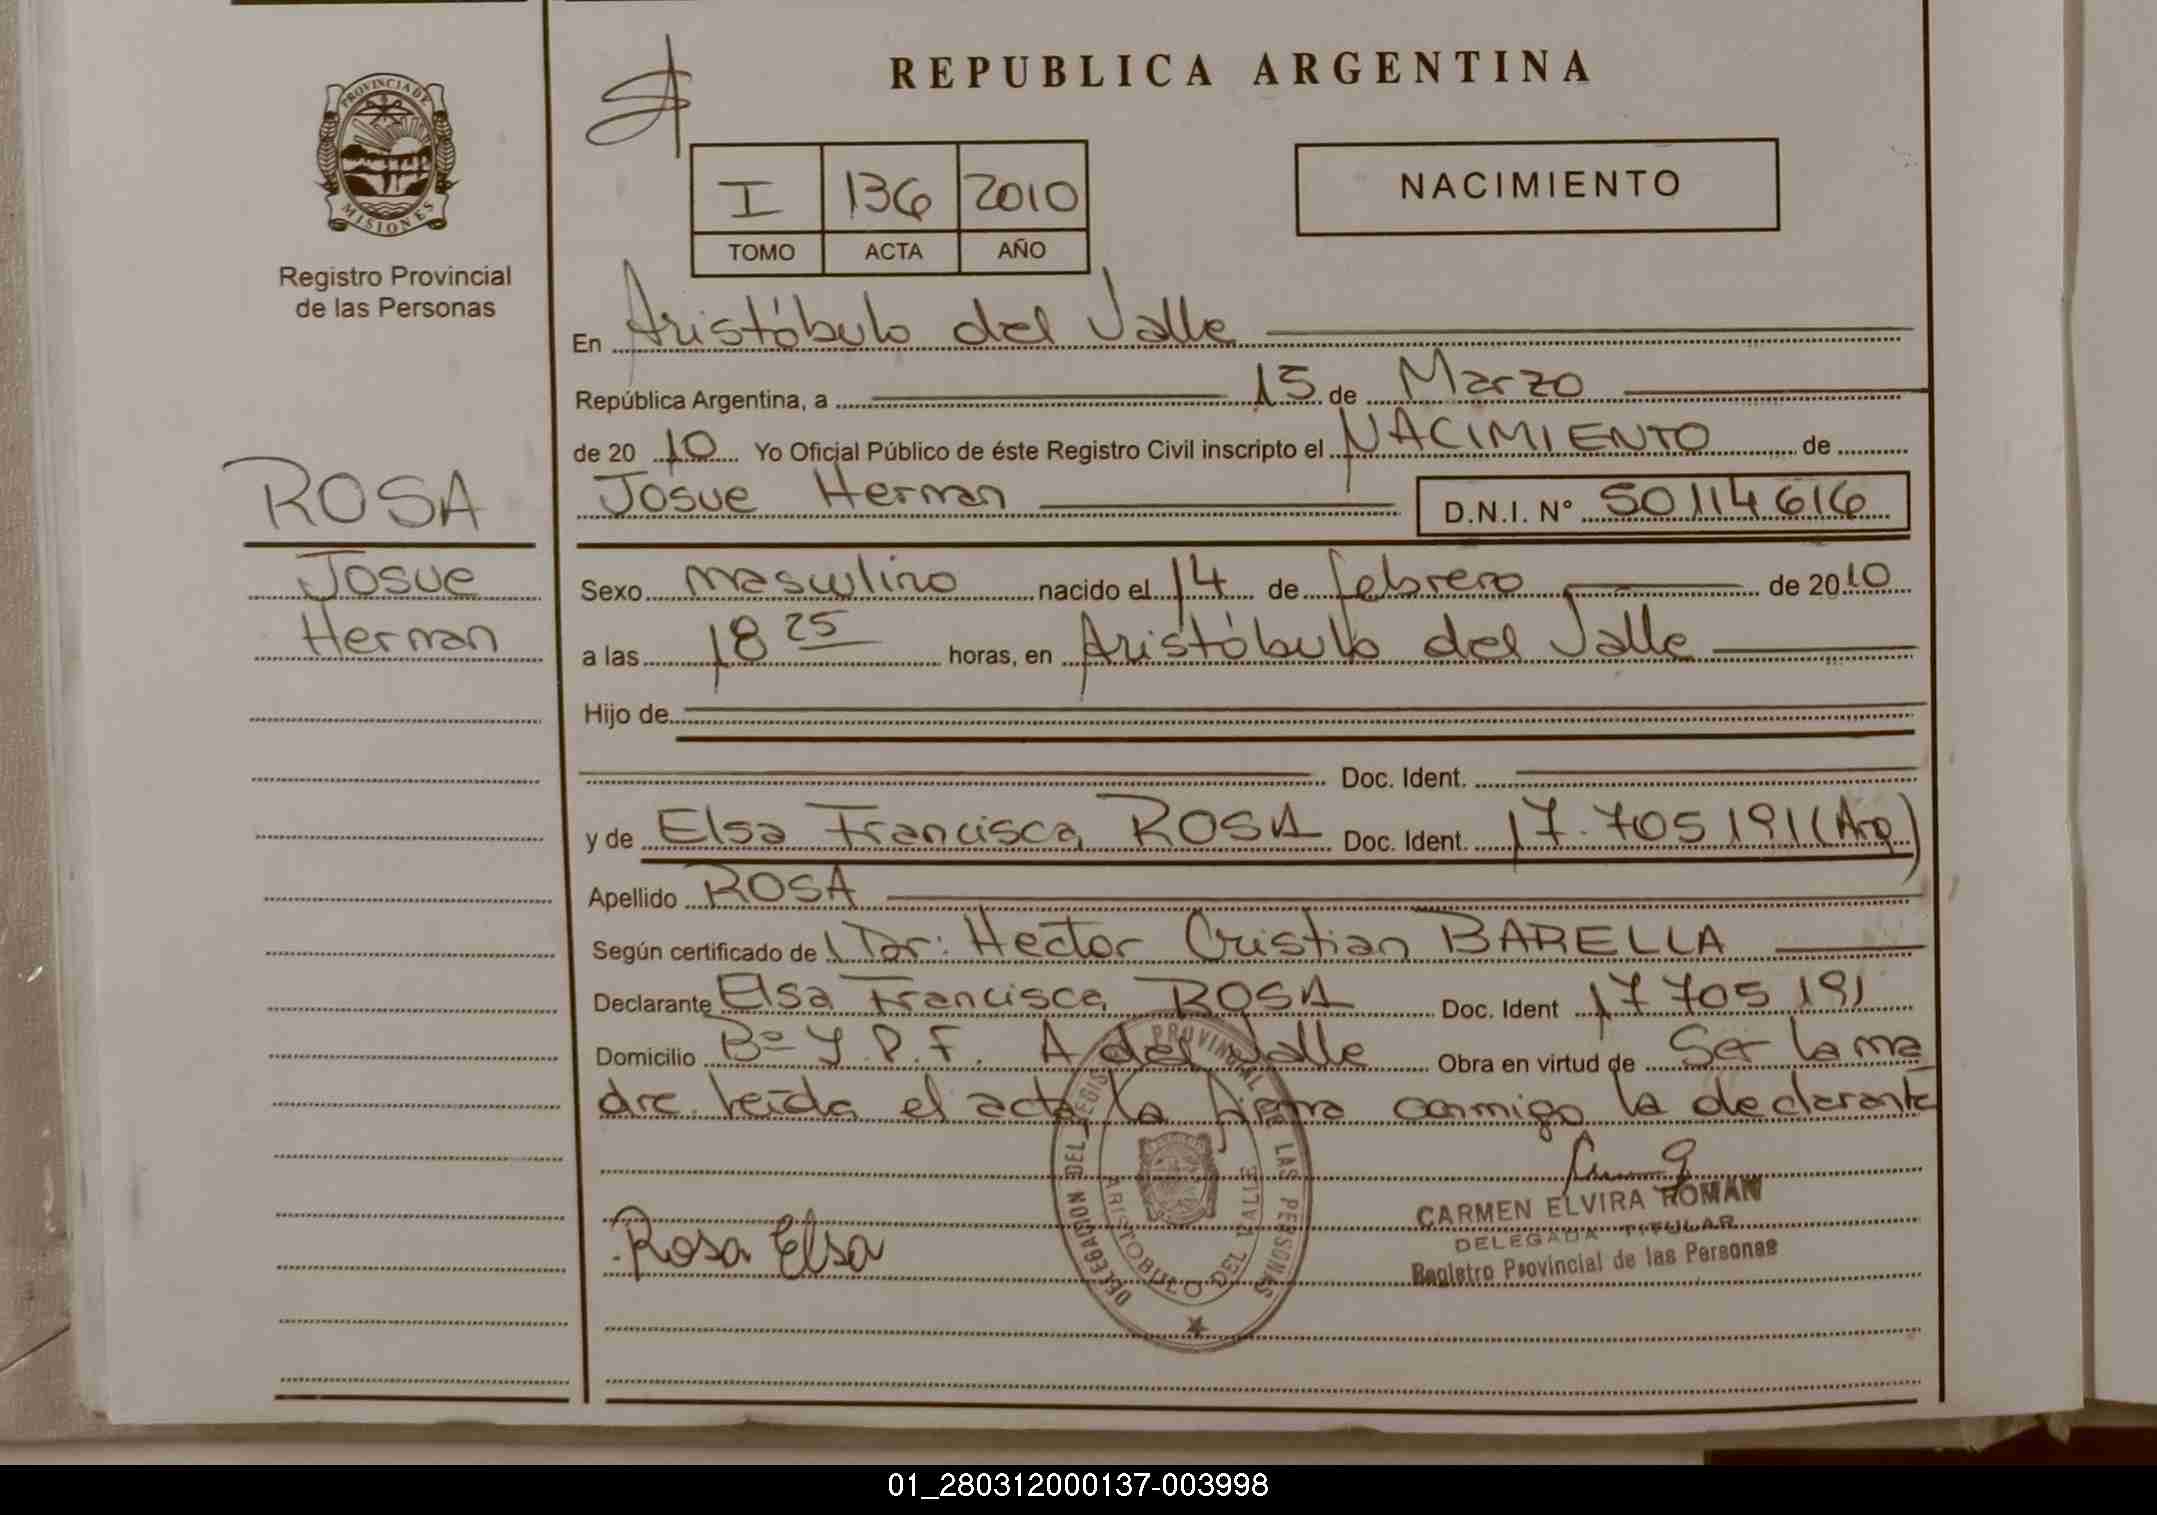 REPUBLICA ARGENTINA
PROVINCIA DE
MISIONES
Registro Provincial
de las Personas
I 136 2010
TOMO ACTA AÑO
NACIMIENTO
En Aristóbulo del Valle
República Argentina, a 15 de Marzo
de 20 10 Yo Oficial Público de éste Registro Civil inscripto el NACIMIENTO de
Josue Hernan D.N.I. N° 50114616
ROSA
Josue
Hernan
Sexo masculino nacido el 14 de febrero de 2010
a las 18 25 horas, en Aristóbulo del Valle
Hijo de
Doc. Ident.
y de Elsa Francisca ROSA Doc. Ident. 17.705191 (Arg.)
Apellido ROSA
Según certificado de Dr: Hector Cristian BARELLA
Declarante Elsa Francisca ROSA Doc. Ident 17705191
Domicilio Bº Y.P.F. A del Valle Obra en virtud de Ser la ma
dre. leída el acta la firma conmigo la declarante
DELEGACION DEL REGISTRO PROVINCIAL DE LAS PERSONAS
ARISTOBULO DEL VALLE
Rosa Elsa
CARMEN ELVIRA ROMAN
DELEGADA TITULAR
Registro Provincial de las Personas
01_280312000137-003998